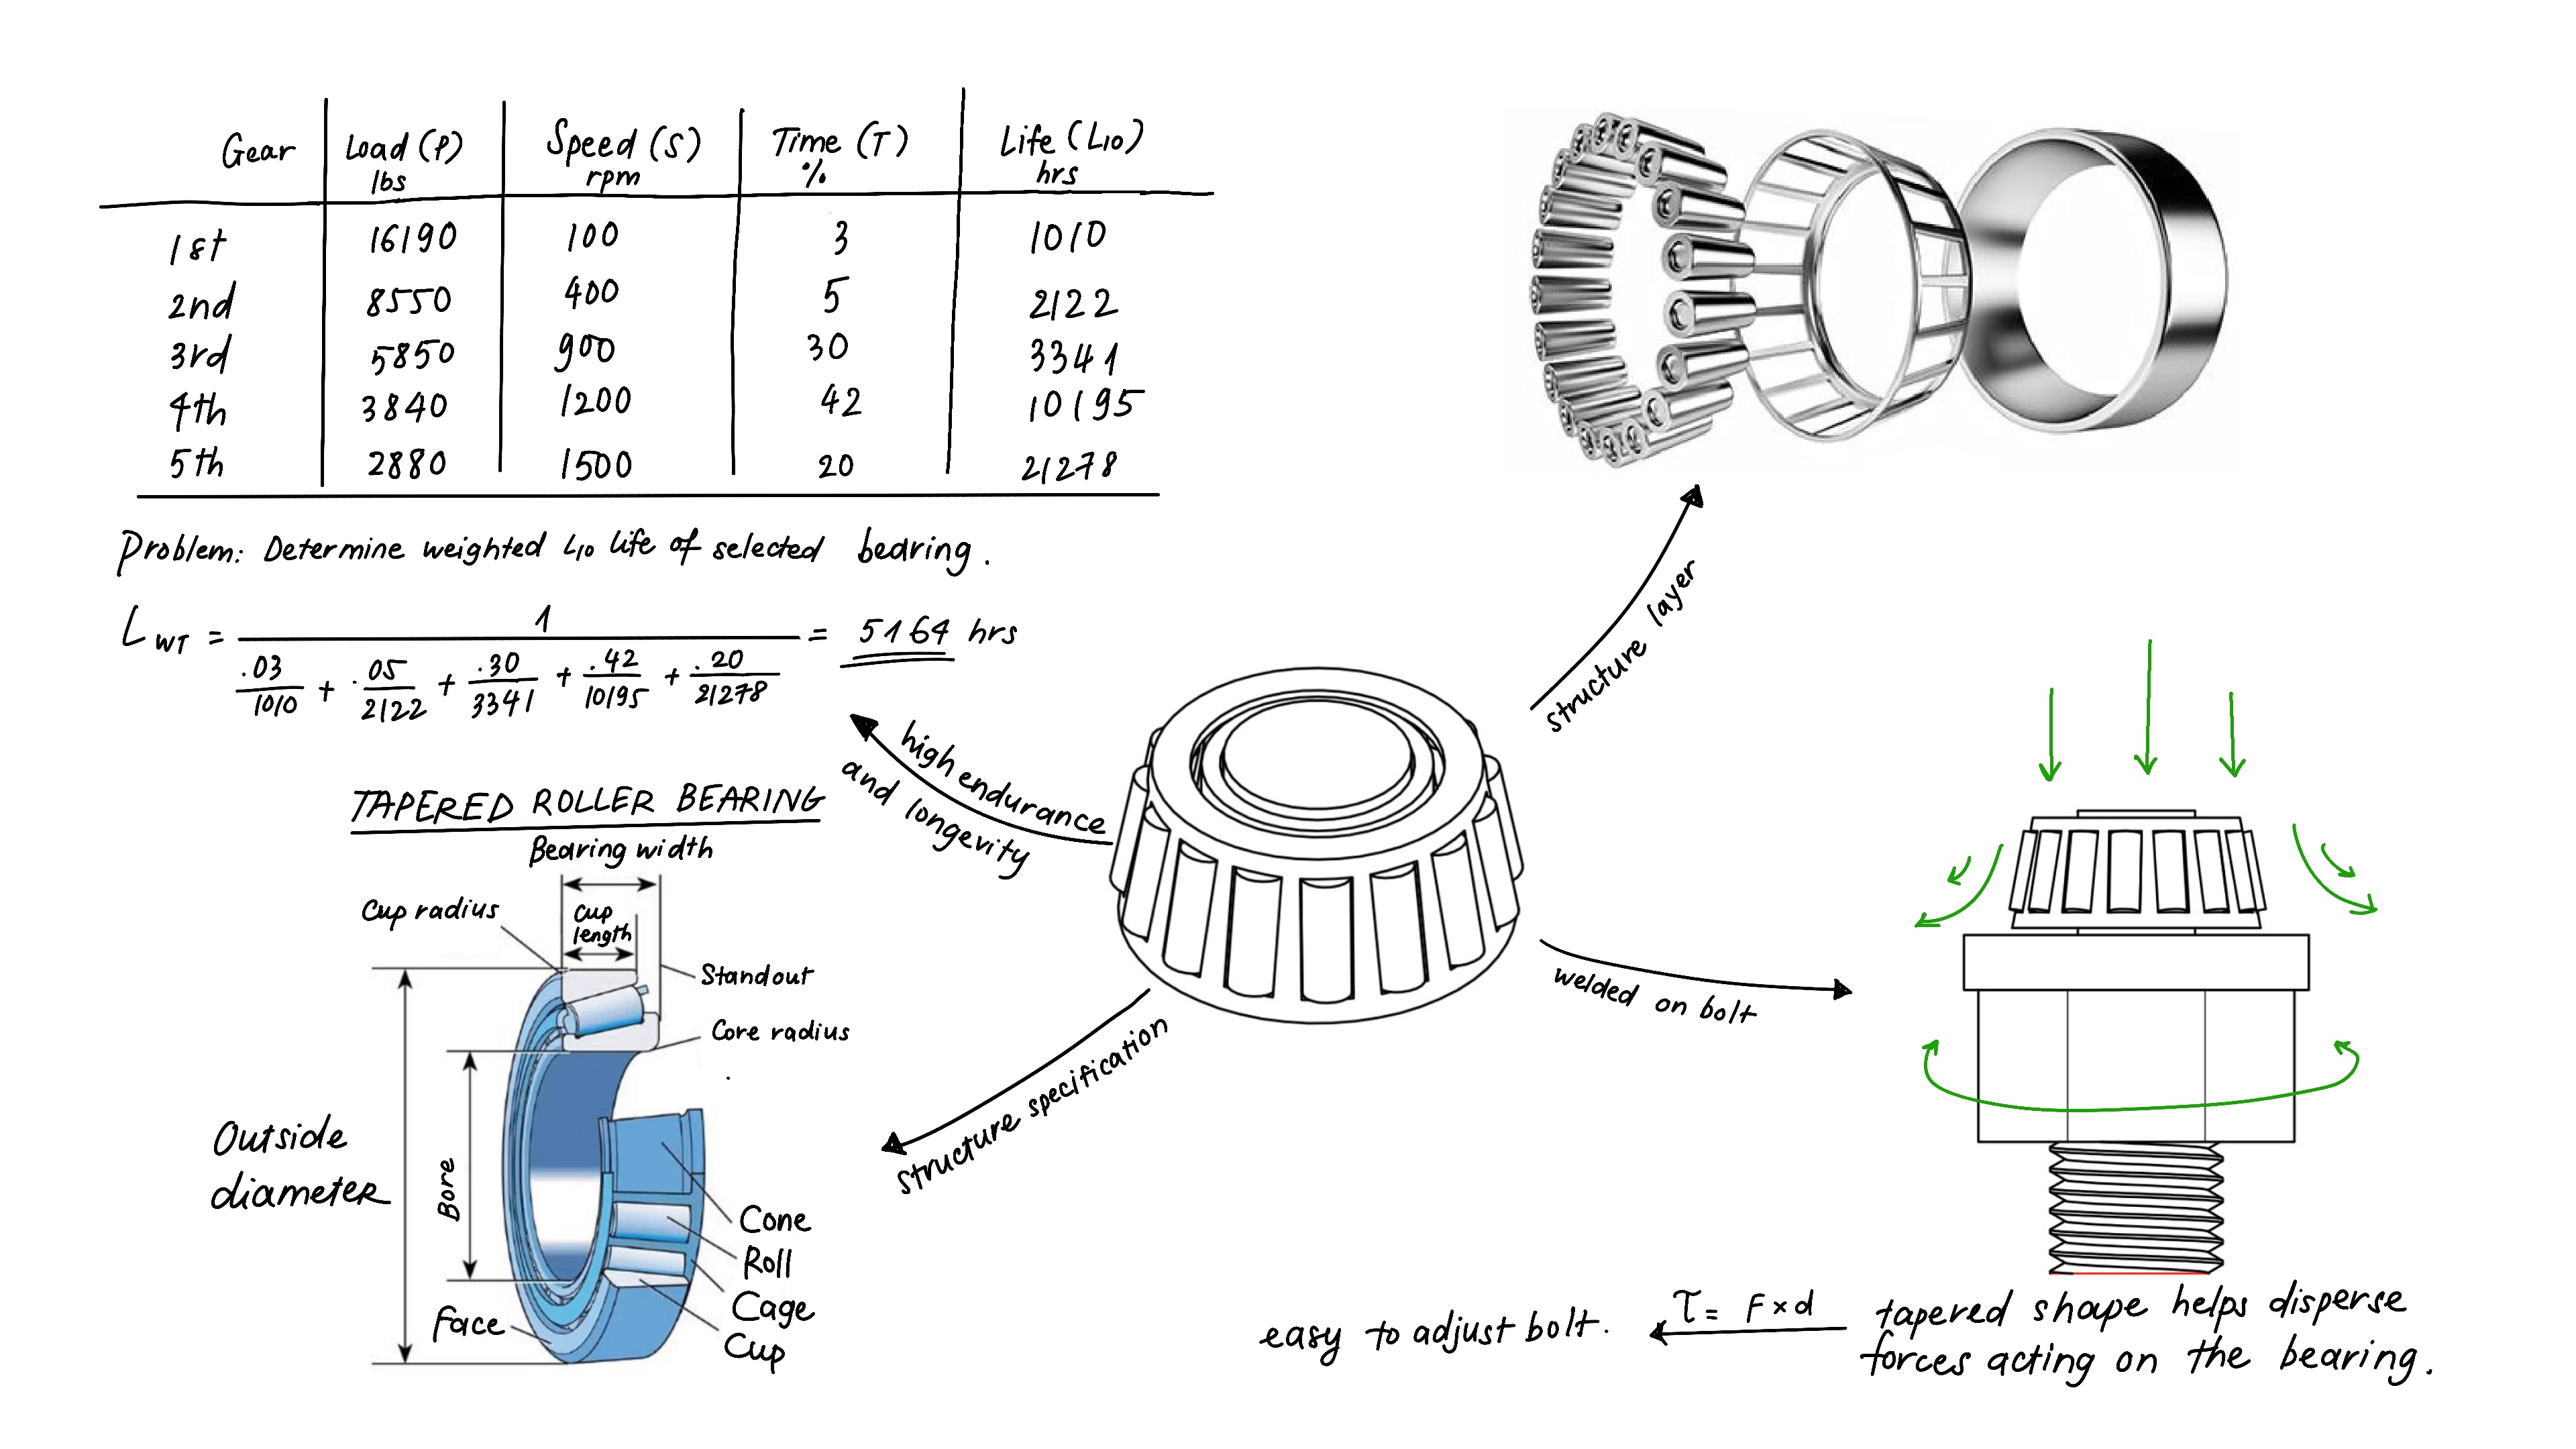 Gear Load (P) Speed (S) Time (T) Life (L10)
lbs rpm % hrs
1st 16190 100 3 1010
2nd 8550 400 5 2122
3rd 5850 900 30 3341
4th 3840 1200 42 10195
5th 2880 1500 20 21278
Problem: Determine weighted L10 life of selected bearing.
1
L WT = = 5164 hrs
.03 + .05 + .30 + .42 + .20
1010 2122 3341 10195 21278
high endurance
and longevity
structure layer
TAPERED ROLLER BEARING
Bearing width
Cup radius
Cup
length
Standout
Core radius
Outside
diameter
Bore
Face
Cone
Roll
Cage
Cup
structure specification
welded on bolt
easy to adjust bolt.
τ = F x d
tapered shape helps disperse
forces acting on the bearing.